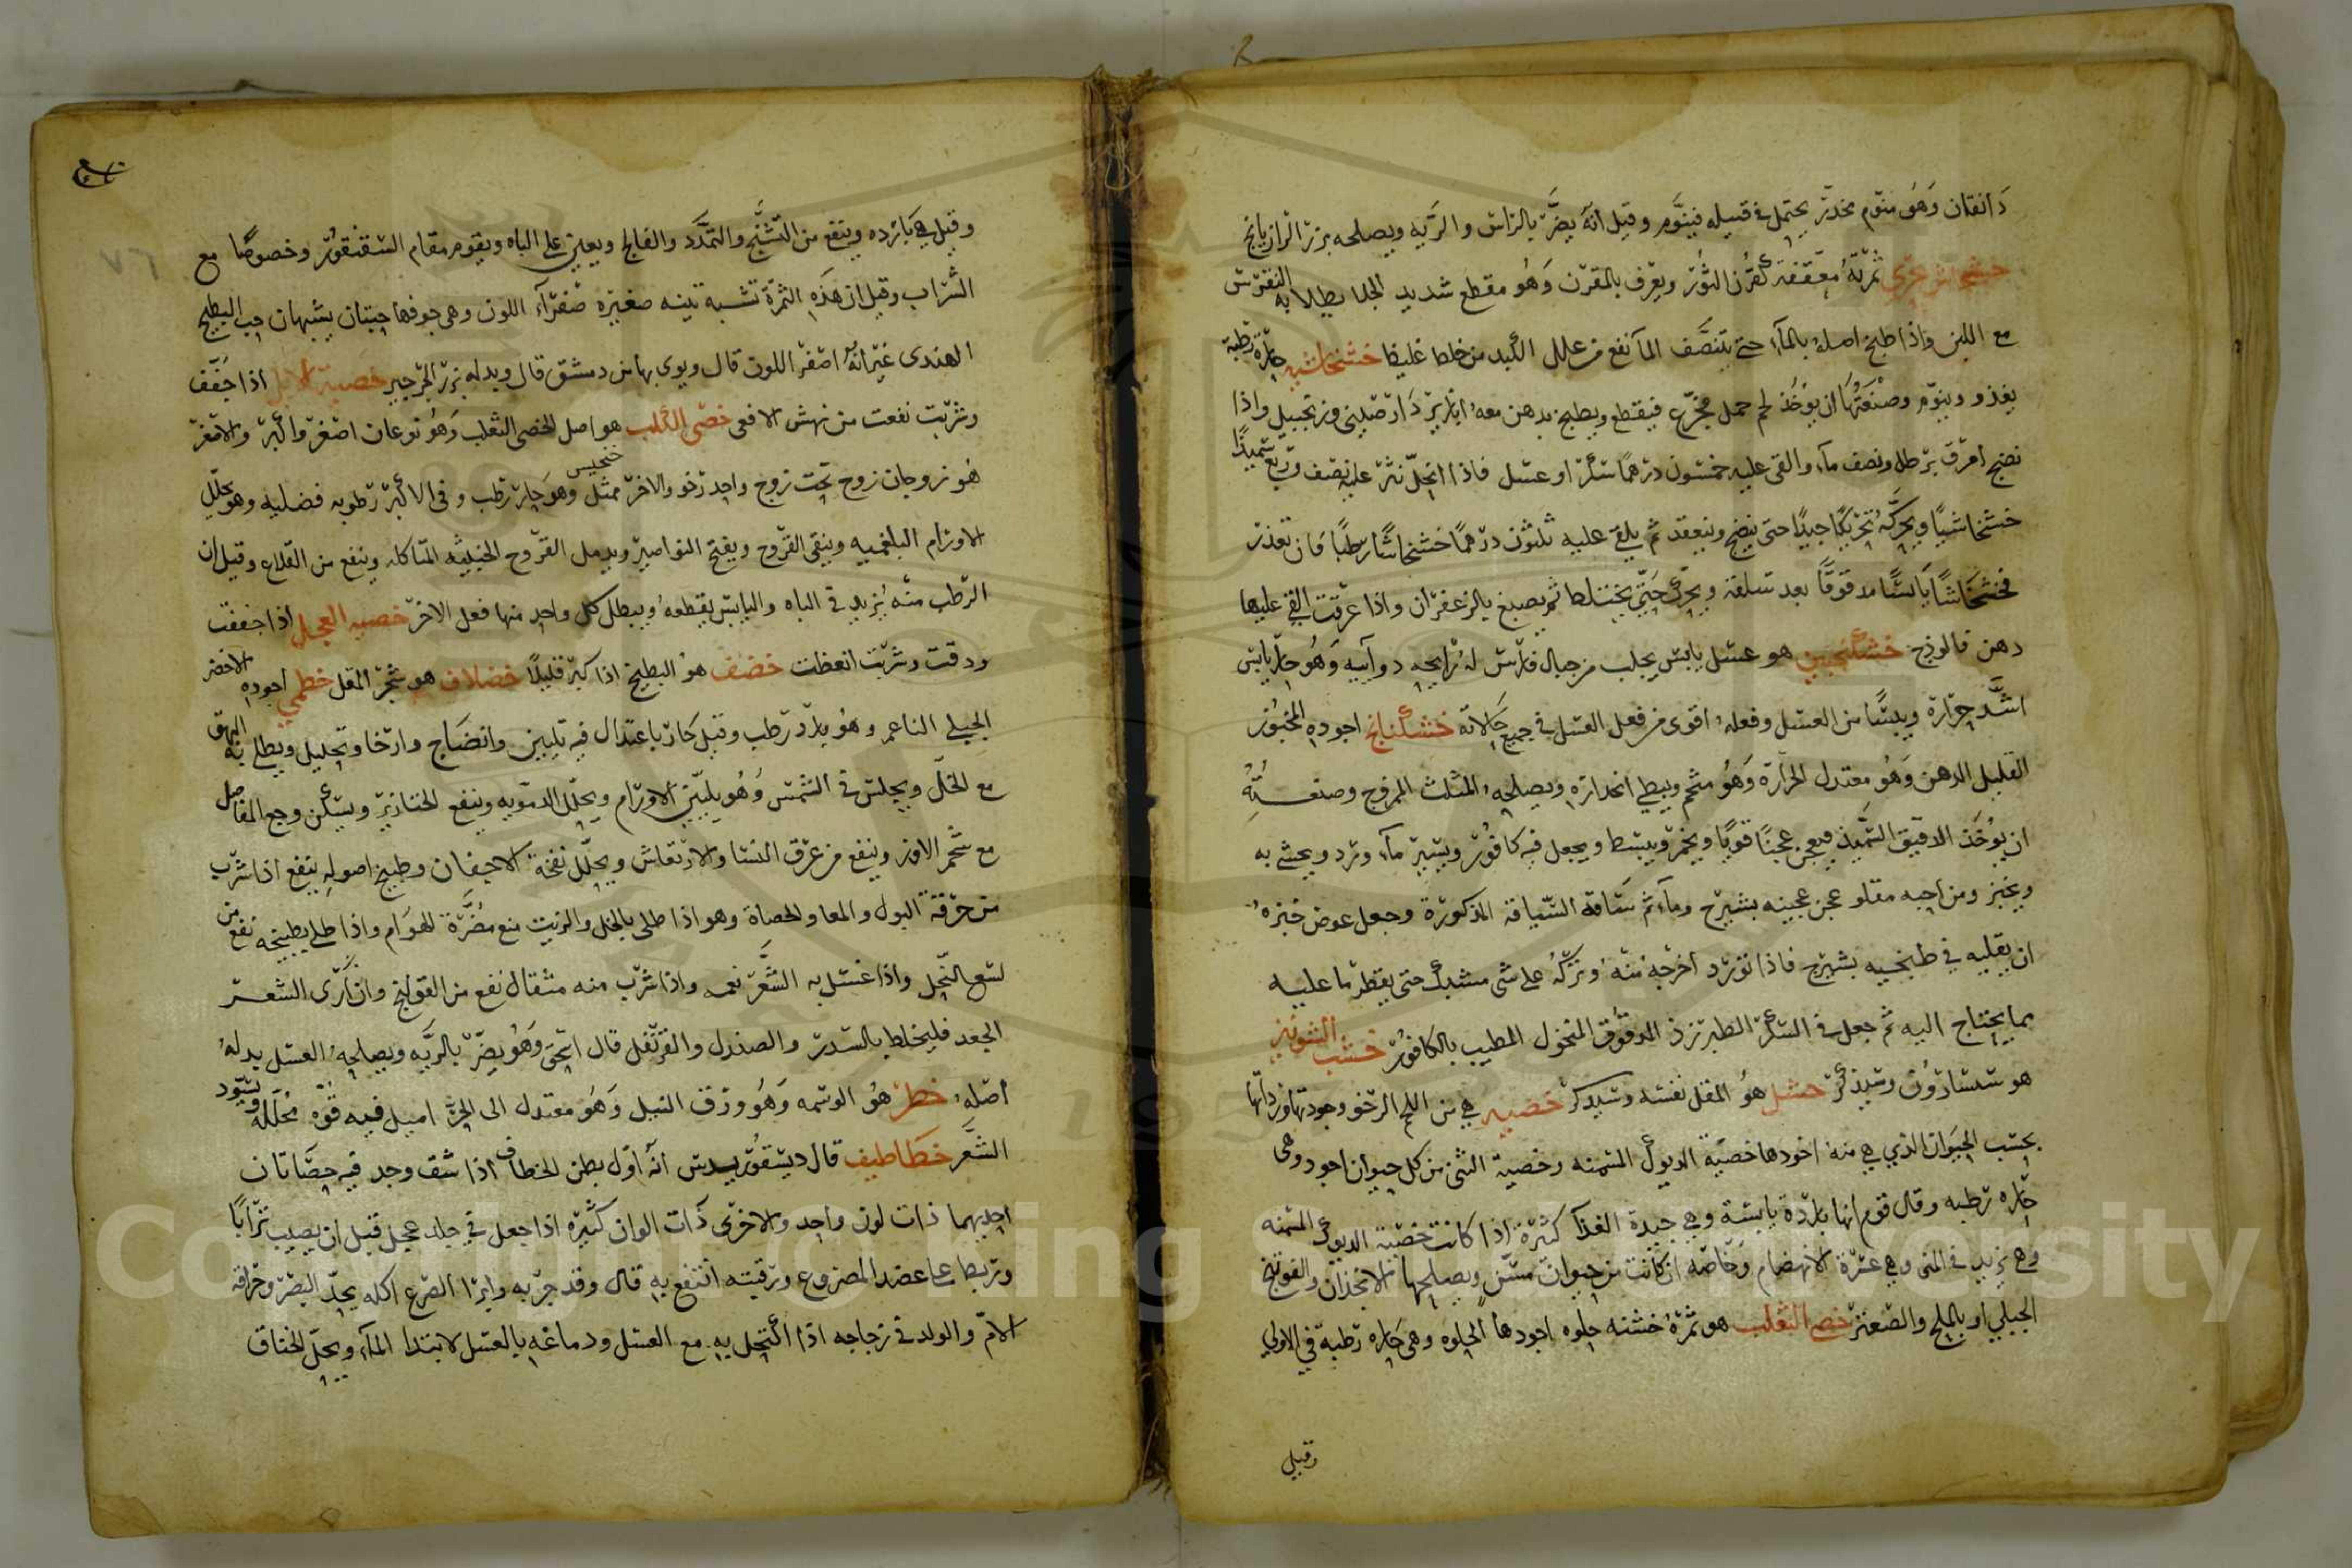 دانقان وهو منوم مخدر يحتمل في فتيله فينوم وقيل انه يضر بالراس والريه ويصلحه بزر الرازيانج
خشخاش بحري ثمرته معقفة كقرن الثور ويعرف بالمقرن وهو مقطع شديد الجلا يطلا به النقرس
مع اللبن واذا طبخ اصله بالماء حتى يتنصف الماء نفع من علل الكبد من خلط غليظ خشخاشيه حارة رطبة
يغذو وينوم وصنعتها ان يوخذ لحم حمل مجزع فيقطع ويطبخ بدهن معه ابازير دارصيني وزنجبيل واذا
نضج امرق برطل ونصف ماء والقى عليه خمسون درهما سكر او عسل فاذا انحل نثر عليه نصف وربع سميذا
خشخاشيا ويحركه تحريكا جيدا حتى ينضج وينعقد ثم يلقى عليه ثلثون درهما خشخاشا رطبا فان تعذر
فخشخاشا يابسا مدقوقا بعد سلقه ويحرك حتى يختلط ثم يصبغ بالزعفران واذا عرقت القى عليها
دهن فالوذج خشكنجبين هو عسل يابس يجلب من جبال فارس له رايحه دوائيه وهو حار يابس
اشد حرارة ويبسا من العسل وفعله اقوى من فعل العسل في جميع حالاته خشكنانج اجوده المخبوز
القليل الدهن وهو معتدل الحرارة وهو متخم وبطي انحداره ويصلحه المثلث الممزوج وصنعته
ان يوخذ الدقيق السميذ فيعجن عجنا قويا ويخمر ويبسط ويجعل فيه كافور ويسير ماء ورد ويحشى به
ويخبز ومن احبه مقلو عجن عجينه بشيرج وماء ثم ساقه السياقه المذكورة وجعل عوض خبزه
ان يقليه في طنجيه بشيرج فاذا تورد اخرجه منه وتركه على شي مشبك حتى يقطر ما عليه
بما يحتاج اليه ثم جعل في السكر الطبرزذ المدقوق المنخول المطيب بالكافور خشب الشونيز
هو شسارون وسيذكر خشل هو المقل نفسه وسيذكر خصيه هي من اللحم الرخو وجودتها وردائتها
بحسب الحيوان الذي هي منه اجودها خصية الديوك المسمنه وخصية الثنى من كل حيوان اجود وهى
حاره رطبه وقال قوم انها باردة يابسة وهي جيدة الغذا كثيرة اذا كانت خصية الديوك المسمنه
وهى تزيد في المنى وهي عسرة الانهضام وخاصه ان كانت من حيوان مسن ويصلحها الانجذان والفوتنج
الجبلي او بالملح والصعتر خصى الثعلب هو ثمرة خشنه حلوه اجودها الحلوه وهى حاره رطبة في الاولى
وقيل
وقيل هي بارده وينفع من التشنج والتمدد والفالج ويعين على الباه ويقوم مقام السقنقور وخصوصا مع
الشراب وقيل ان هذه الثمرة تشبه تينه صغيره صفراء اللون وهى جوفها حبتان يشبهان حب البطيخ
الهندى غير انه اصفر اللون قال ويوى بها من دمشق قال وبدله بزر الجرجير خصية الايل اذا جفف
وشربت نفعت من نهش الافعى خصى الكلب هو اصل لخصى الثعلب وهو نوعان اصغر واكبر والاصغر
هو زوجان زوج تحت زوج واحد رخو والاخر ممتلى وهو حار رطب وفى الاكبر رطوبه فضليه وهو يحلل
الاورام البلغميه وينقى القروح ويفتح النواصير ويدمل القروح الخبيثه المتاكله وينفع من القلاع وقيل ان
الرطب منه يزيد في الباه واليابس يقطعه ويبطل كل واحد منها فعل الاخر خصيه العجل اذا جففت
ودقت وشربت انعظت خضف هو البطيخ اذا كبر قليلا خضلاف هو شجر المقل خطمي اجوده الاخضر
الجبلي الناعم وهو بارد رطب وقيل حار باعتدال فيه تليين وانضاج وارخا وتحليل ويطلى به البهق
مع الخل ويجلس في الشمس وهو يلين الاورام ويحلل الدمويه وينفع الخنازير ويسكن وجع المفاصل
مع شحم الاوز وينفع من عرق النسا والارتعاش ويحلل نفخة الاجفان وطبيخ اصوله ينفع اذا شرب
من حرقة البول والمعا والحصاة وهو اذا طلى بالخل والزيت منع مضرة الهوام واذا طلى بطبيخه نفع من
لسع النحل واذا غسل به الشعر نعمه واذا شرب منه مثقال نفع من القولنج وان ارى الشعر
الجعد فليخلط بالسدر والصندل والقرنفل قال اسحق وهو يضر بالريه ويصلحه العسل بدله
اصله خطر هو الوسمه وهو ورق النيل وهو معتدل الى الحر اميل فيه قوه محلله ويسود
الشعر خطاطيف قال ديسقوريدس انه اول بطن الخطاف اذا شق وجد فيه حصاتان
احديهما ذات لون واحد والاخرى ذات الوان كثيره اذا جعل في جلد عجل قبل ان يصيب ترابا
وربط على عضد المصروع ورقبته انتفع به قال وقد جربه وابرا الصرع اكله يحد البصر وحراقه
الام والولد في زجاجه اذا اكتحل به مع العسل ودماغه بالعسل لابتدا الماء ويحل الخناق
٧٦